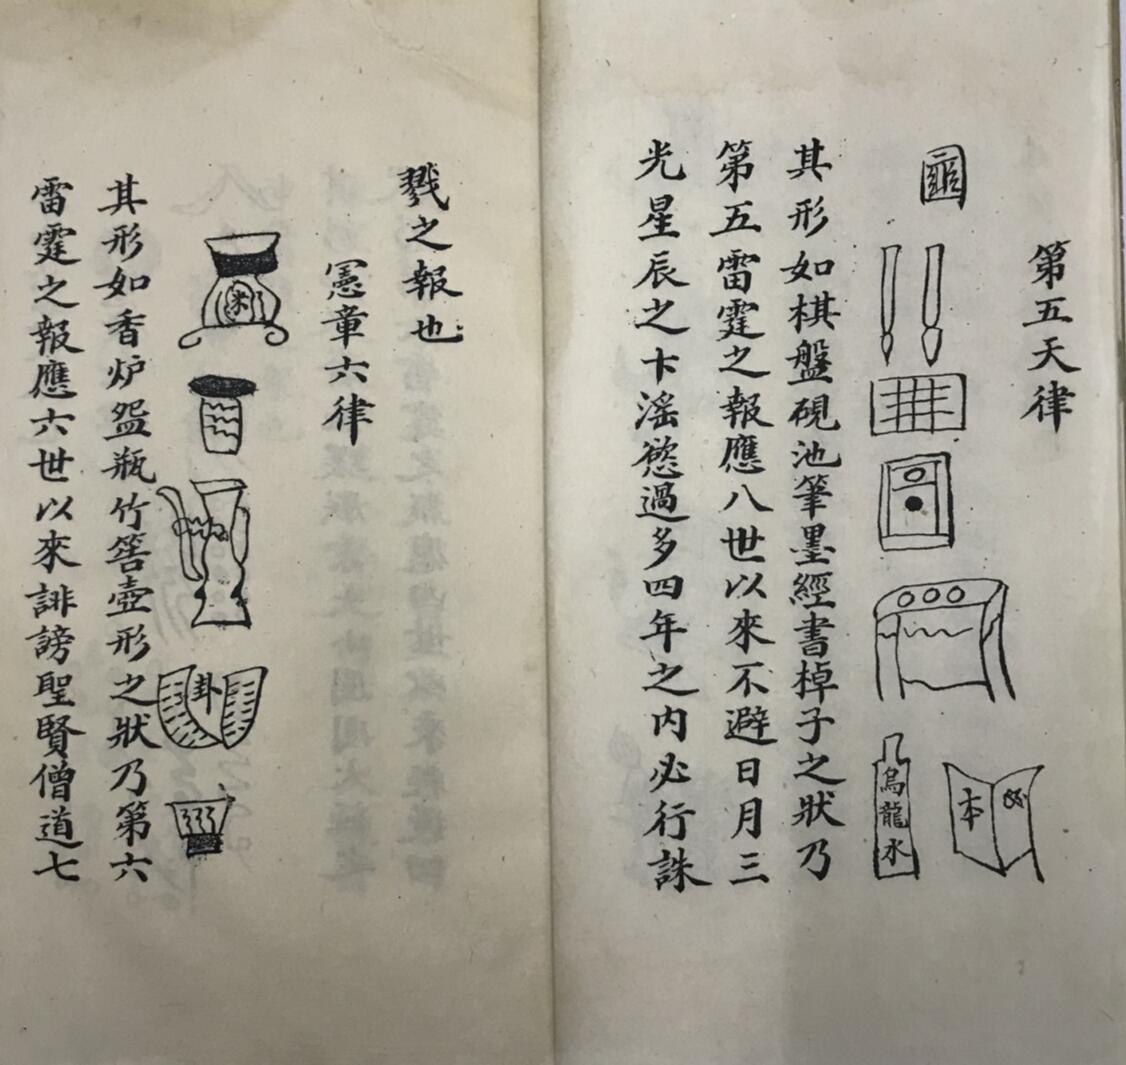 第五天律
烏龍水
本
其形如棋盤硯池筆墨經書棹子之狀乃
第五雷霆之報應八世以來不避日月三
光星辰之卞滛慾過多四年之内必行誅
戮之報也
憲章六律
卦
其形如香炉盌瓶竹筶壺形之狀乃第六
雷霆之報應六世以來誹謗聖賢僧道七